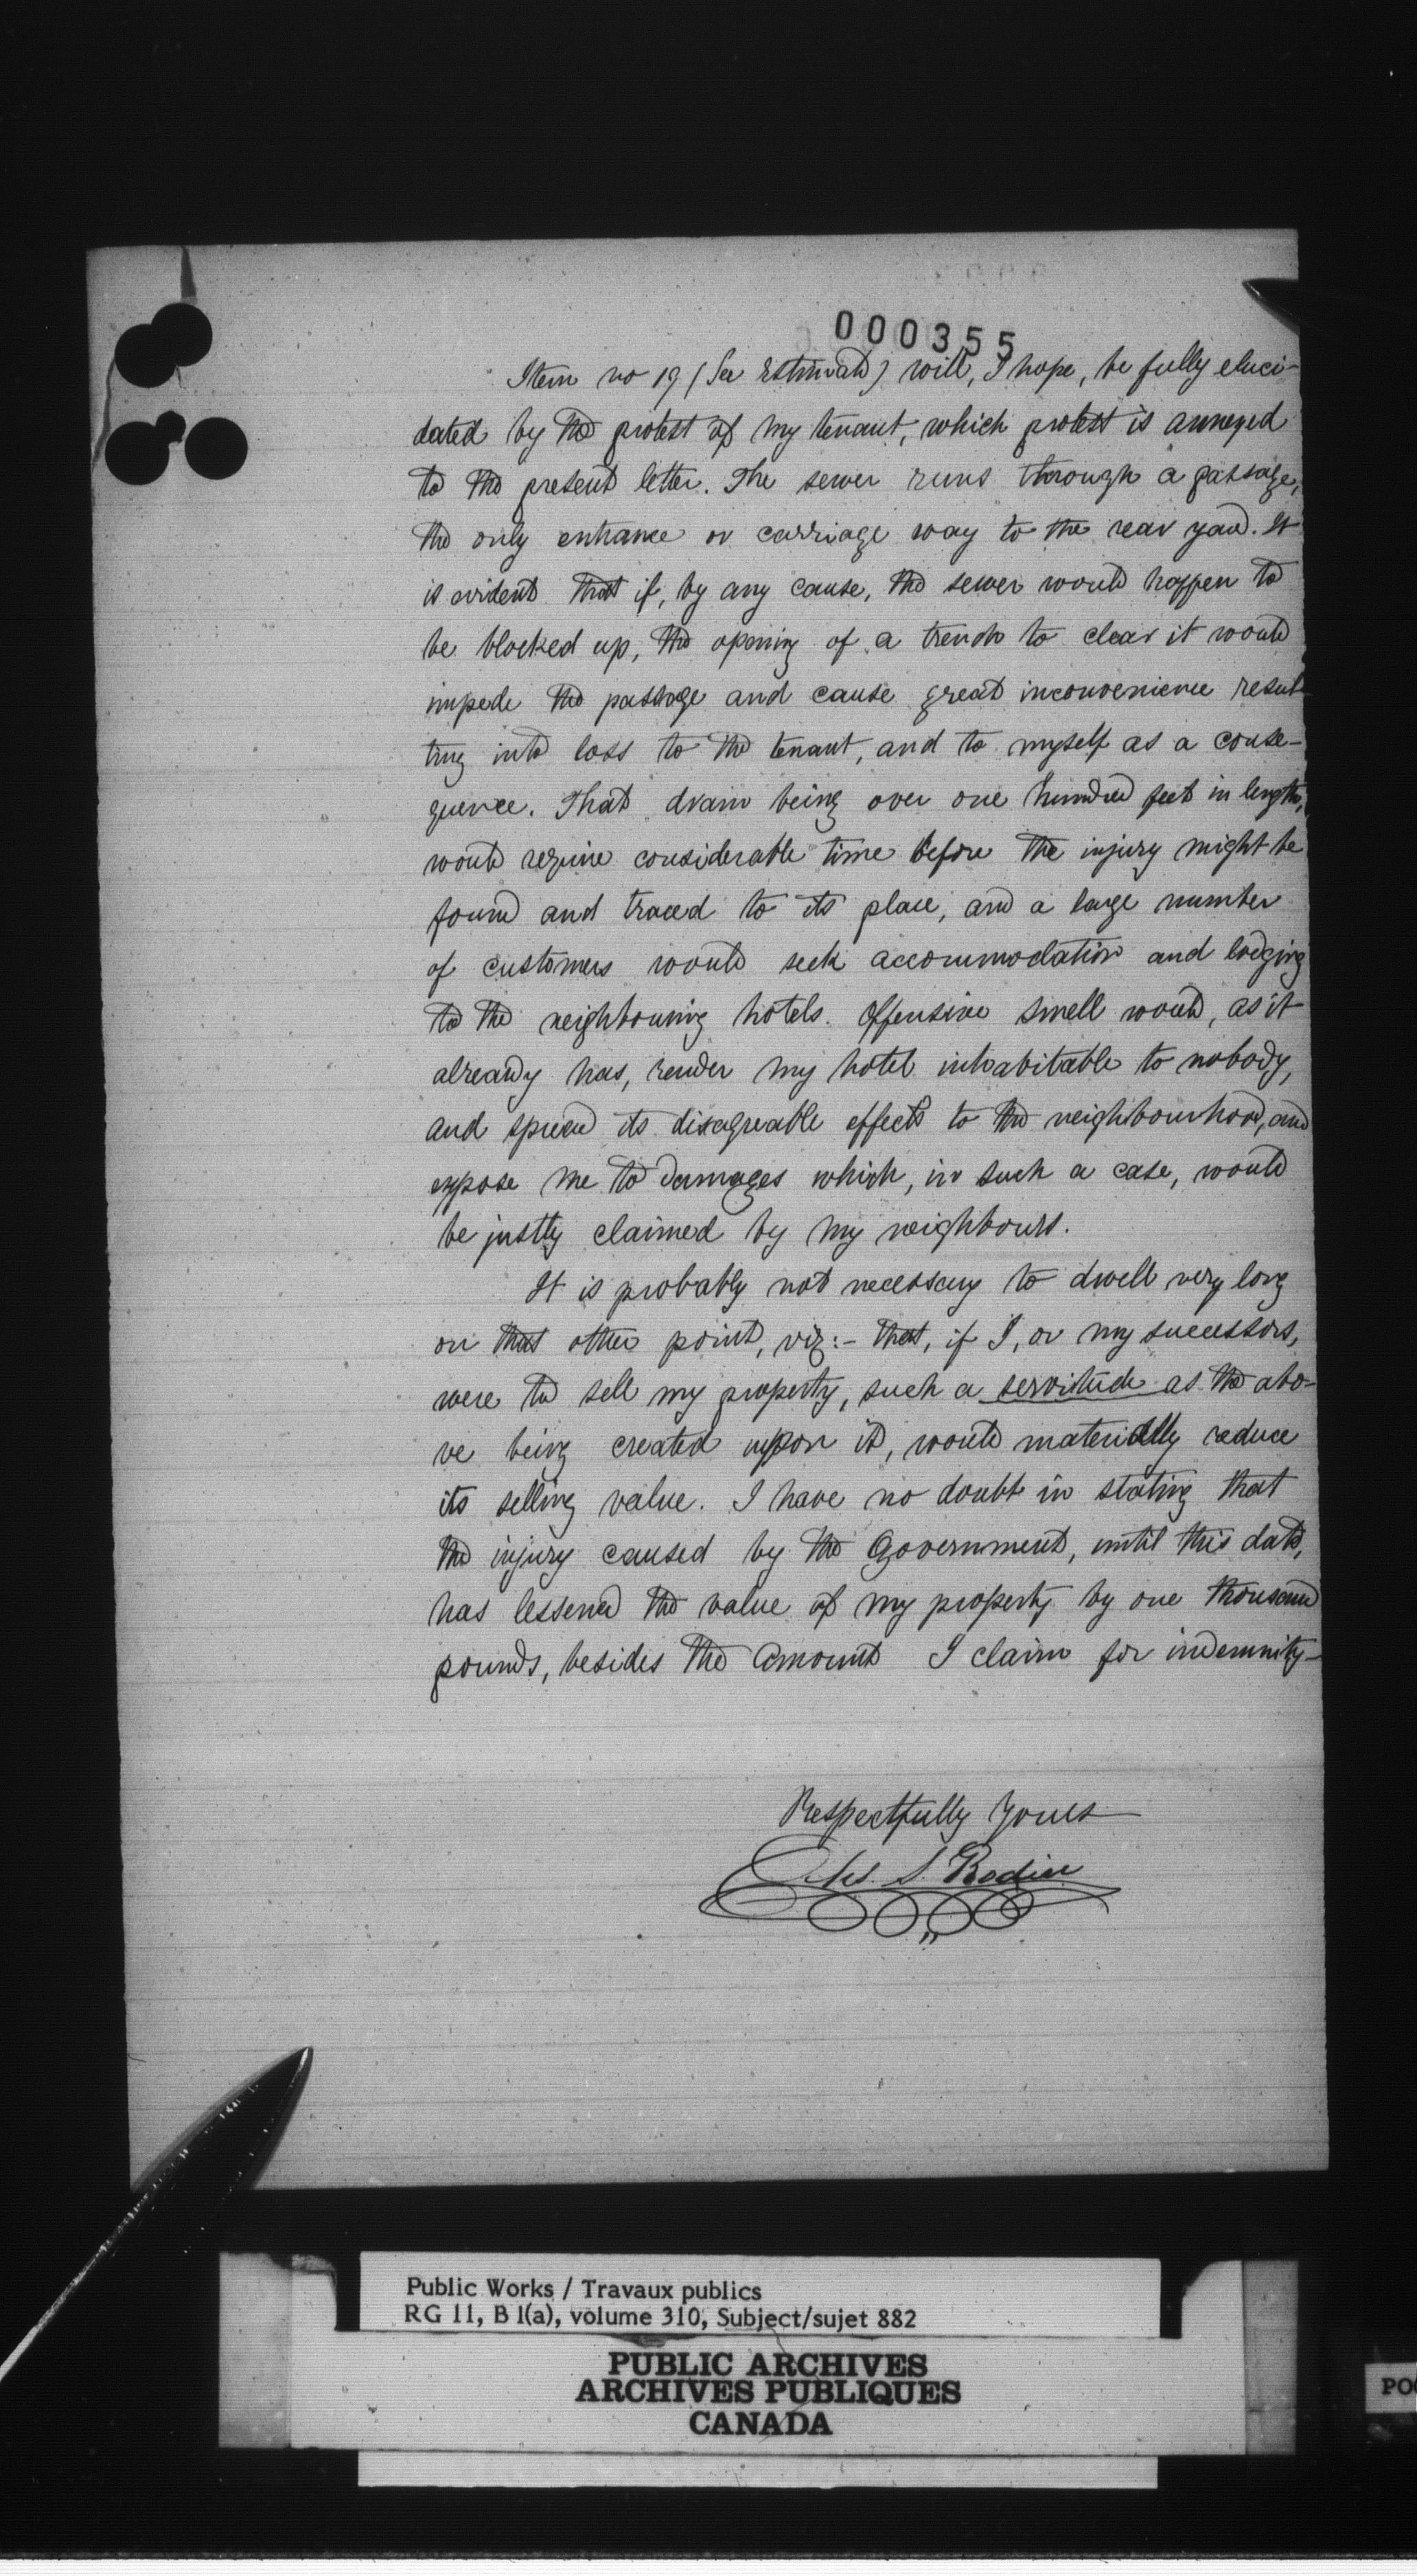 000355
Item no 19 (See Estimate) will, I hope, be fully eluci-
dated by the protest of my tenant, which protest is annexed
to the present letter. The sewer runs through a passage,
the only entrance or carriage way to the rear yard. It
is evident that if, by any cause, the sewer would happen to
be blocked up, the opening of a trench to clear it would
impede the passage and cause great inconvenience resul-
ting into loss to the tenant, and to myself as a conse-
quence. That drain being over one hundred feet in length,
would require considerable time before the injury might be
found and traced to its place, and a large number
of customers would seek accommodation and lodging
to the neighbouring hotels. Offensive smell would, as it
already has, render my hotel inhabitable to nobody,
and spread its disagreable effects to the neighbourhood, and
expose me to damages which, in such a case, would
be justly claimed by my neighbours.
It is probably not necessary to dwell very long
on that other point, viz:- that, if I, or my successors,
were to sell my property, such a servitude as the abo-
ve being created upon it, would materially reduce
its selling value. I have no doubt in stating that
the injury caused by the Government, until this date,
has lessened the value of my property by one thousand
pounds, besides the amount I claim for indemnity-
Respectfully Yours
Chs. S. Rodier
Public Works / Travaux publics
RG 11, B 1(a), volume 310, Subject/sujet 882
PUBLIC ARCHIVES
ARCHIVES PUBLIQUES
CANADA